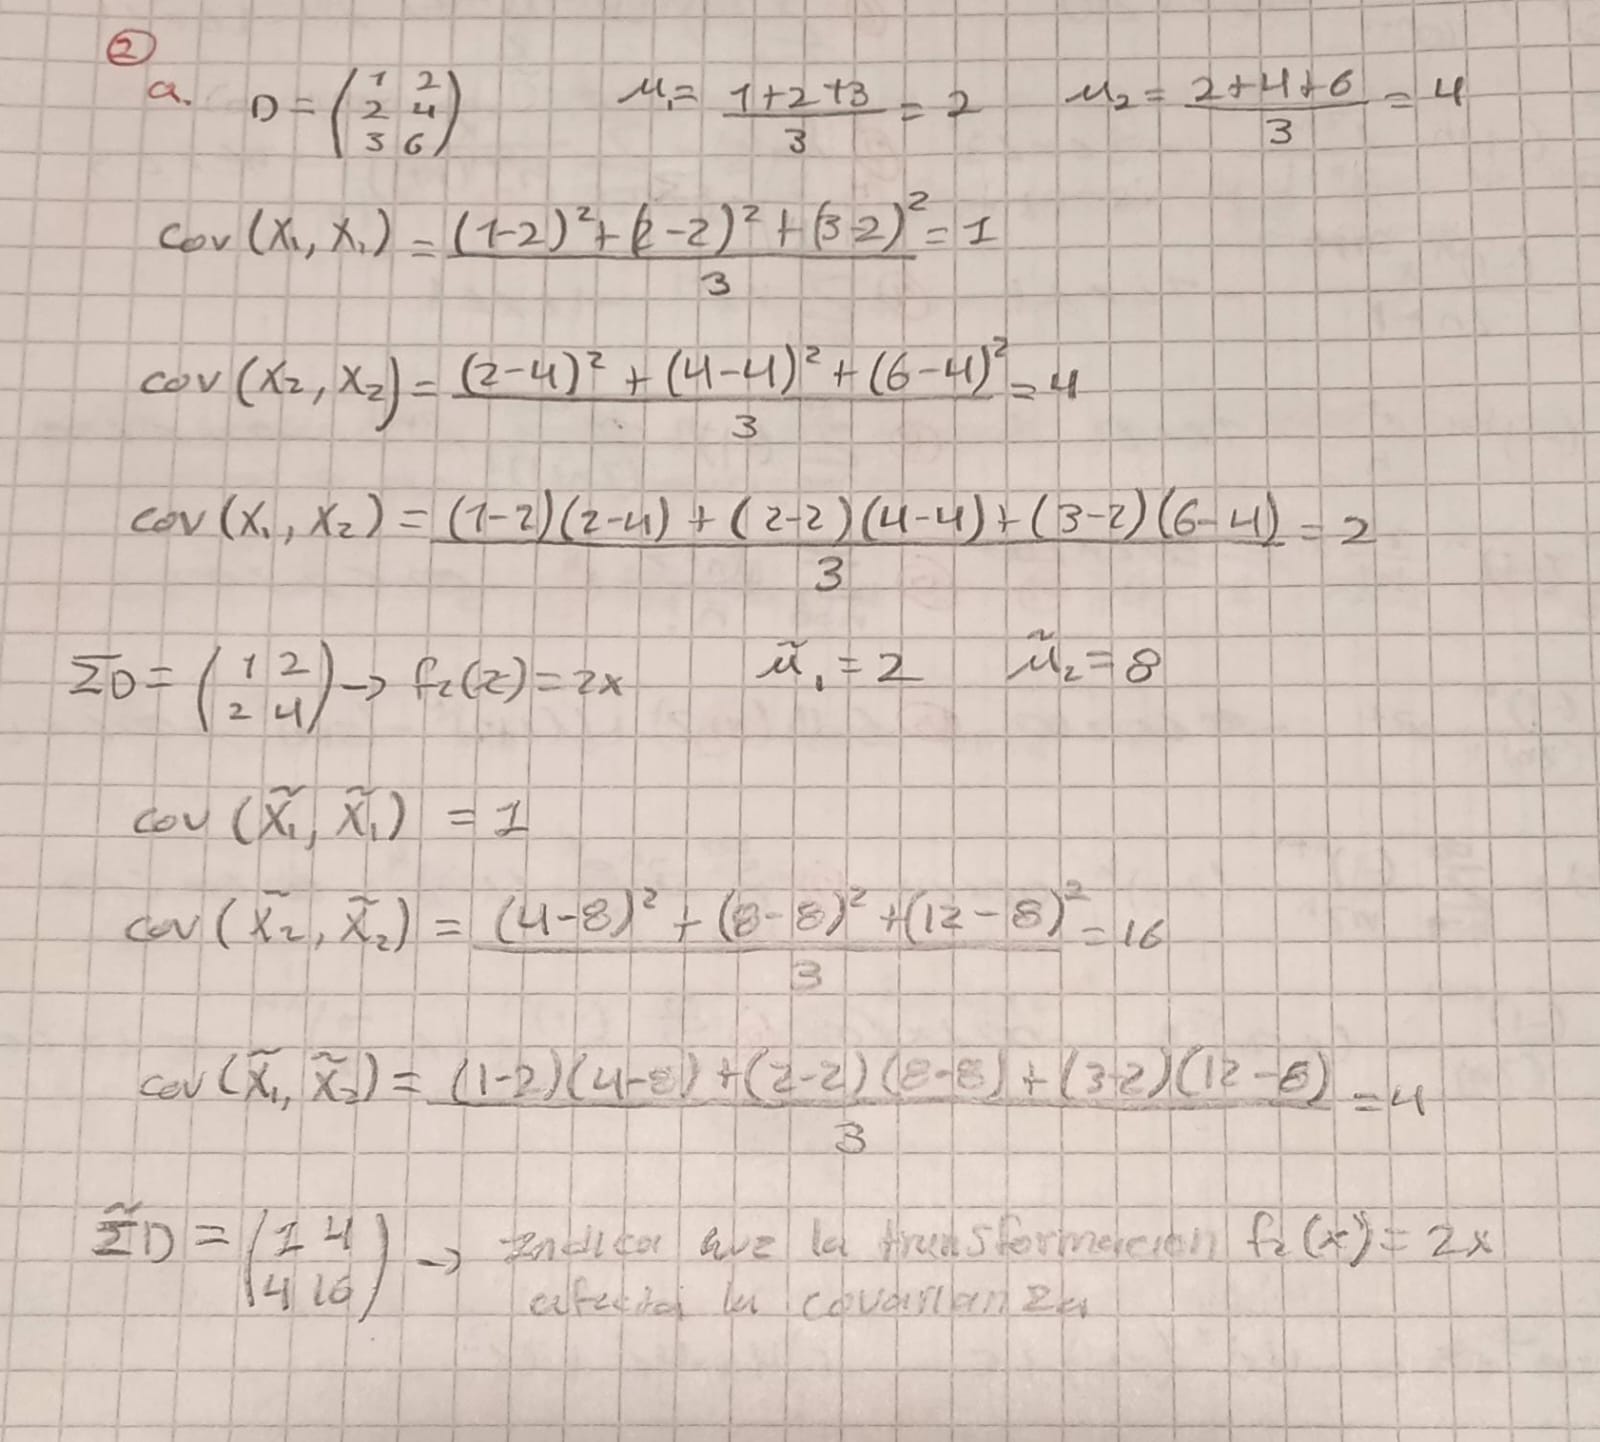 ②
a. D = (1 2 / 2 4 / 3 6) μ₁ = (1+2+3)/3 = 2 μ₂ = (2+4+6)/3 = 4
cov(x₁, x₁) = ((1-2)² + (2-2)² + (3-2)²)/3 = 1
cov(x₂, x₂) = ((2-4)² + (4-4)² + (6-4)²)/3 = 4
cov(x₁, x₂) = ((1-2)(2-4) + (2-2)(4-4) + (3-2)(6-4))/3 = 2
ΣD = (1 2 / 2 4) → f₂(z) = 2x μ̃₁ = 2 μ̃₂ = 8
cov(x̃₁, x̃₁) = 1
cov(x̃₂, x̃₂) = ((4-8)² + (8-8)² + (12-8)²)/3 = 16
cov(x̃₁, x̃₂) = ((1-2)(4-8) + (2-2)(8-8) + (3-2)(12-8))/3 = 4
Σ̃D = (1 4 / 4 16) → Indica que la transformacion f₂(x) = 2x
afecta la covarianza